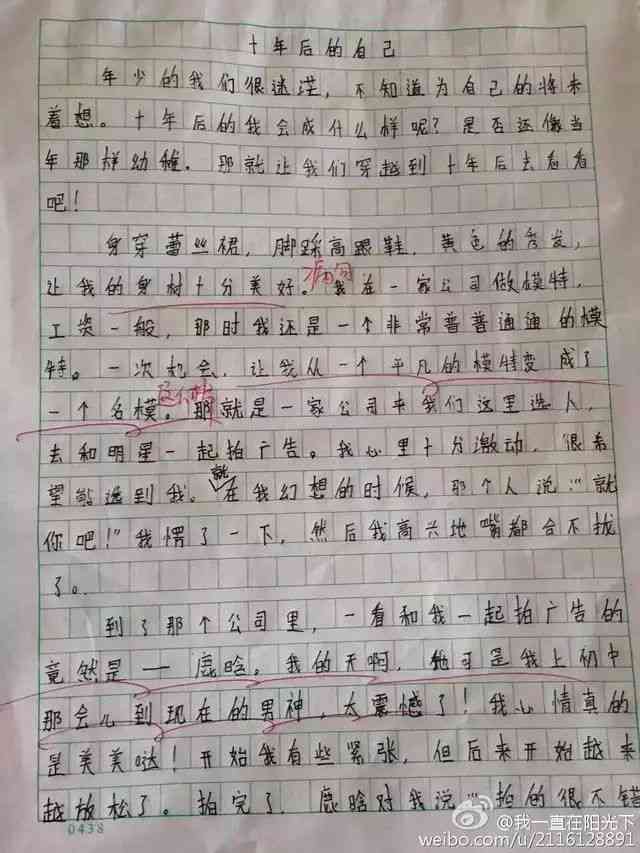 十年后的自己
年少的我们很迷茫，不知道为自己的将来
着想。十年后的我会成什么样呢？是否还像当
年那样幼稚。那就让我们穿越到十年后去看看
吧！
身穿蕾丝裙，脚踩高跟鞋，黄色的秀发，
病句
让我的身材十分美好。我在一家公司做模特，
工资一般，那时我还是一个非常普普通通的模
特。一次机会，让我从一个平凡的模特变成了
一个名模。那就是一家公司来我们这里选人，
去和明星一起拍广告。我心里十分激动，很希
望能选到我。就在我幻想的时候，那个人说："就
你吧！"我愣了一下，然后我高兴地嘴都合不拢
了。
到了那个公司里，一看和我一起拍广告的
竟然是——鹿晗。我的天啊，他可是我上初中
那会儿到现在的男神，太震憾了！我心情真的
是美美哒！开始我有些紧张，但后来开始越来
越放松了。拍完了，鹿晗对我说："拍的很不错
0438
@我一直在阳光下
weibo.com/u/2116128891